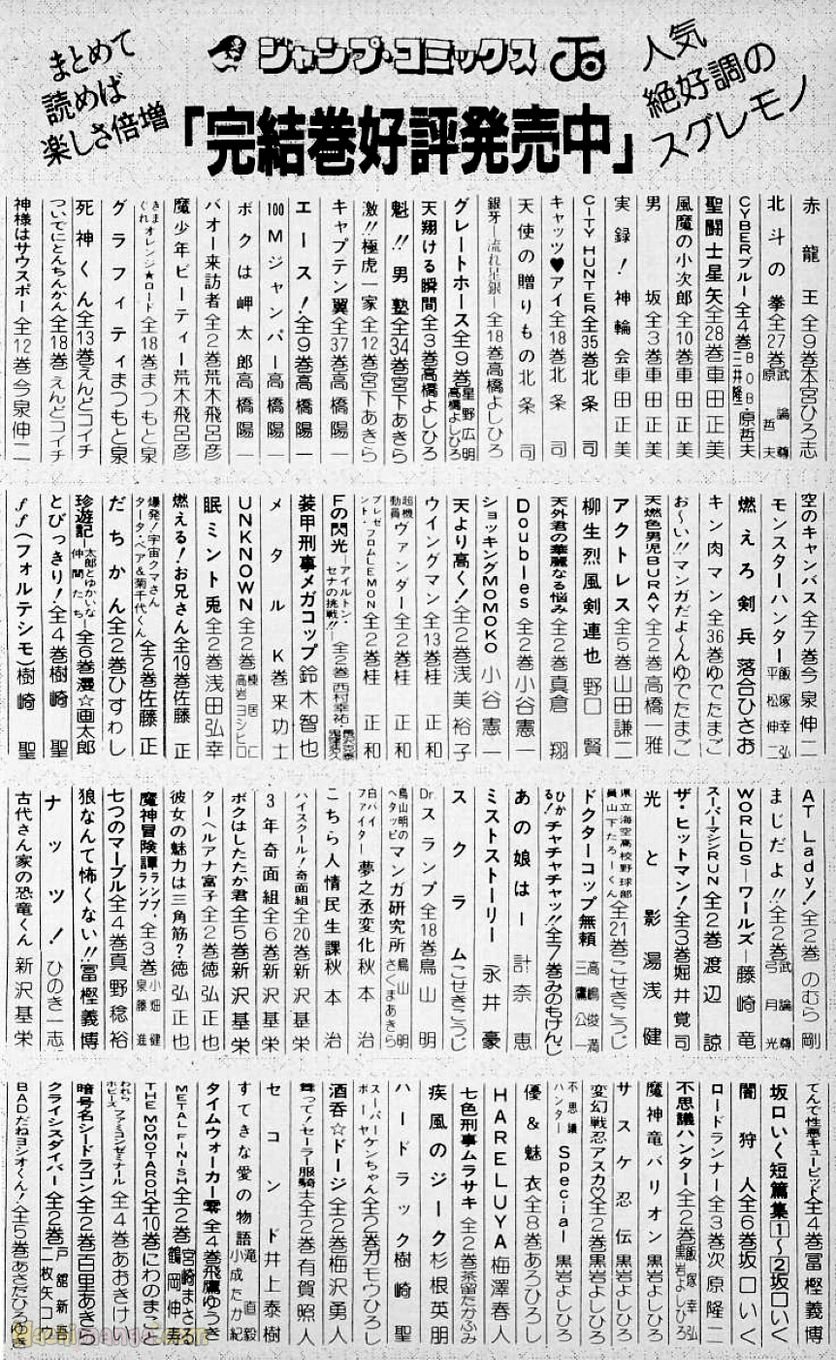 まとめて
読めば
楽しさ倍増
ジャンプ・コミックス
人気
絶好調の
スグレモノ
「完結巻好評発売中」
赤龍王全9巻本宮ひろ志
北斗の拳全27巻武論尊 原哲夫
CYBERブルー全4巻BOB 三井隆一 原哲夫
聖闘士星矢全28巻車田正美
風魔の小次郎全10巻車田正美
男坂全3巻車田正美
実録!神輪会車田正美
CITY HUNTER全35巻北条司
キャッツ♥アイ全18巻北条司
天使の贈りもの北条司
銀牙―流れ星銀全18巻高橋よしひろ
グレートホース全9巻星野広明 高橋よしひろ
天翔ける瞬間全3巻高橋よしひろ
魁!!男塾全34巻宮下あきら
激!!極虎一家全12巻宮下あきら
キャプテン翼全37巻高橋陽一
エース!全9巻高橋陽一
100Mジャンパー高橋陽一
ボクは岬太郎高橋陽一
バオー来訪者全2巻荒木飛呂彦
魔少年ビーティー荒木飛呂彦
きまぐれオレンジ★ロード全18巻まつもと泉
グラフィティまつもと泉
死神くん全13巻えんどコイチ
ついでにとんちんかん全18巻えんどコイチ
神様はサウスポー全12巻今泉伸二
空のキャンバス全7巻今泉伸二
モンスターハンター飯塚幸弘 平松伸二
燃えろ剣兵落合ひさお
キン肉マン全36巻ゆでたまご
お〜い!!マンガだよくんゆでたまご
天燃色男児BURAY全2巻高橋一雅
アクトレス全5巻山田謙二
柳生烈風剣連也野口賢
天外君の華麗なる悩み全2巻真倉翔
Doubles全2巻小谷憲一
ショッキングMOMOKO小谷憲一
天より高く!全2巻浅美裕子
ウイングマン全13巻桂正和
超機動員ヴァンダー全2巻桂正和
プレゼント・フロムLEMON全2巻桂正和
Fの閃光―アイルトン・セナの挑戦!!―全2巻西村幸祐・
装甲刑事メガコップ鈴木智也
メタルK巻来功士
UNKNOWN全2巻棟居仁 高岩ヨシヒロ
眠ミント兎全2巻浅田弘幸
燃える!お兄さん全19巻佐藤正
爆発!宇宙クマさん タータ・ベア&菊千代くん全2巻佐藤正
だちかん全2巻ひすわし
珍遊記―太郎とゆかいな仲間たち―全6巻漫☆画太郎
とびっきり!全4巻樹崎聖
ff(フォルテシモ)樹崎聖
AT Lady!全2巻のむら剛
まじだよ!!全2巻武論尊 弓月光
WORLDS―ワールズ―藤崎竜
スーパーマシンRUN全2巻渡辺諒
ザ・ヒットマン!全3巻堀井覚司
光と影湯浅健
県立海空高校野球部員山下たろーくん全21巻こせきこうじ
ドクターコップ無頼高嶋俊満 三鷹公一
ひかる!チャチャチャッ!!全7巻みのもけんじ
あの娘はー計奈恵
ミストストーリー永井豪
スクラムこせきこうじ
Dr.スランプ全18巻鳥山明
鳥山明のヘタッピマンガ研究所鳥山明 さくまあきら
白バイファイター夢之丞変化秋本治
こちら人情民生課秋本治
ハイスクール!奇面組全20巻新沢基栄
3年奇面組全6巻新沢基栄
ボクはしたたか君全5巻新沢基栄
ターヘルアナ富子全2巻徳弘正也
彼女の魅力は三角筋?徳弘正也
魔神冒険譚ランプ・ランプ全3巻小畑健 泉藤進
七つのマーブル全4巻真野稔裕
狼なんて怖くない!!冨樫義博
ナッツ!ひのき一志
古代さん家の恐竜くん新沢基栄
てんで性悪キューピッド全4巻冨樫義博
坂口いく短篇集1〜2坂口いく
闇狩人全6巻坂口いく
ロードランナー全3巻次原隆二
不思議ハンター全2巻飯塚幸弘 黒岩よしひろ
魔神竜バリオン黒岩よしひろ
サスケ忍伝黒岩よしひろ
変幻戦忍アスカ♡全2巻黒岩よしひろ
不思議ハンターSpecial黒岩よしひろ
優&魅衣全8巻あろひろし
HARELUYA梅澤春人
七色刑事ムラサキ全2巻茶留たかふみ
疾風のジーク杉根英朋
ハードラック樹崎聖
スーパーヤケンちゃん全2巻ガモウひろし
酒呑☆ドージ全2巻梅沢勇人
舞って!セーラー服騎士全2巻有賀照人
セコンド井上泰樹
すてきな愛の物語滝直毅 小成たか紀
タイムウォーカー零全4巻飛鷹ゆうき
METAL FINISH全2巻宮崎まさる 鶴岡伸寿
THE MOMOTAROH全10巻にわのまこと
われらホビーズ ファミコンゼミナール全4巻あおきけい
暗号名シードラゴン全2巻百里あきら
クライシスダイバー全2巻戸舘新吾 二枚矢コウ
BADだねヨシオくん!全5巻あさだひろゆき